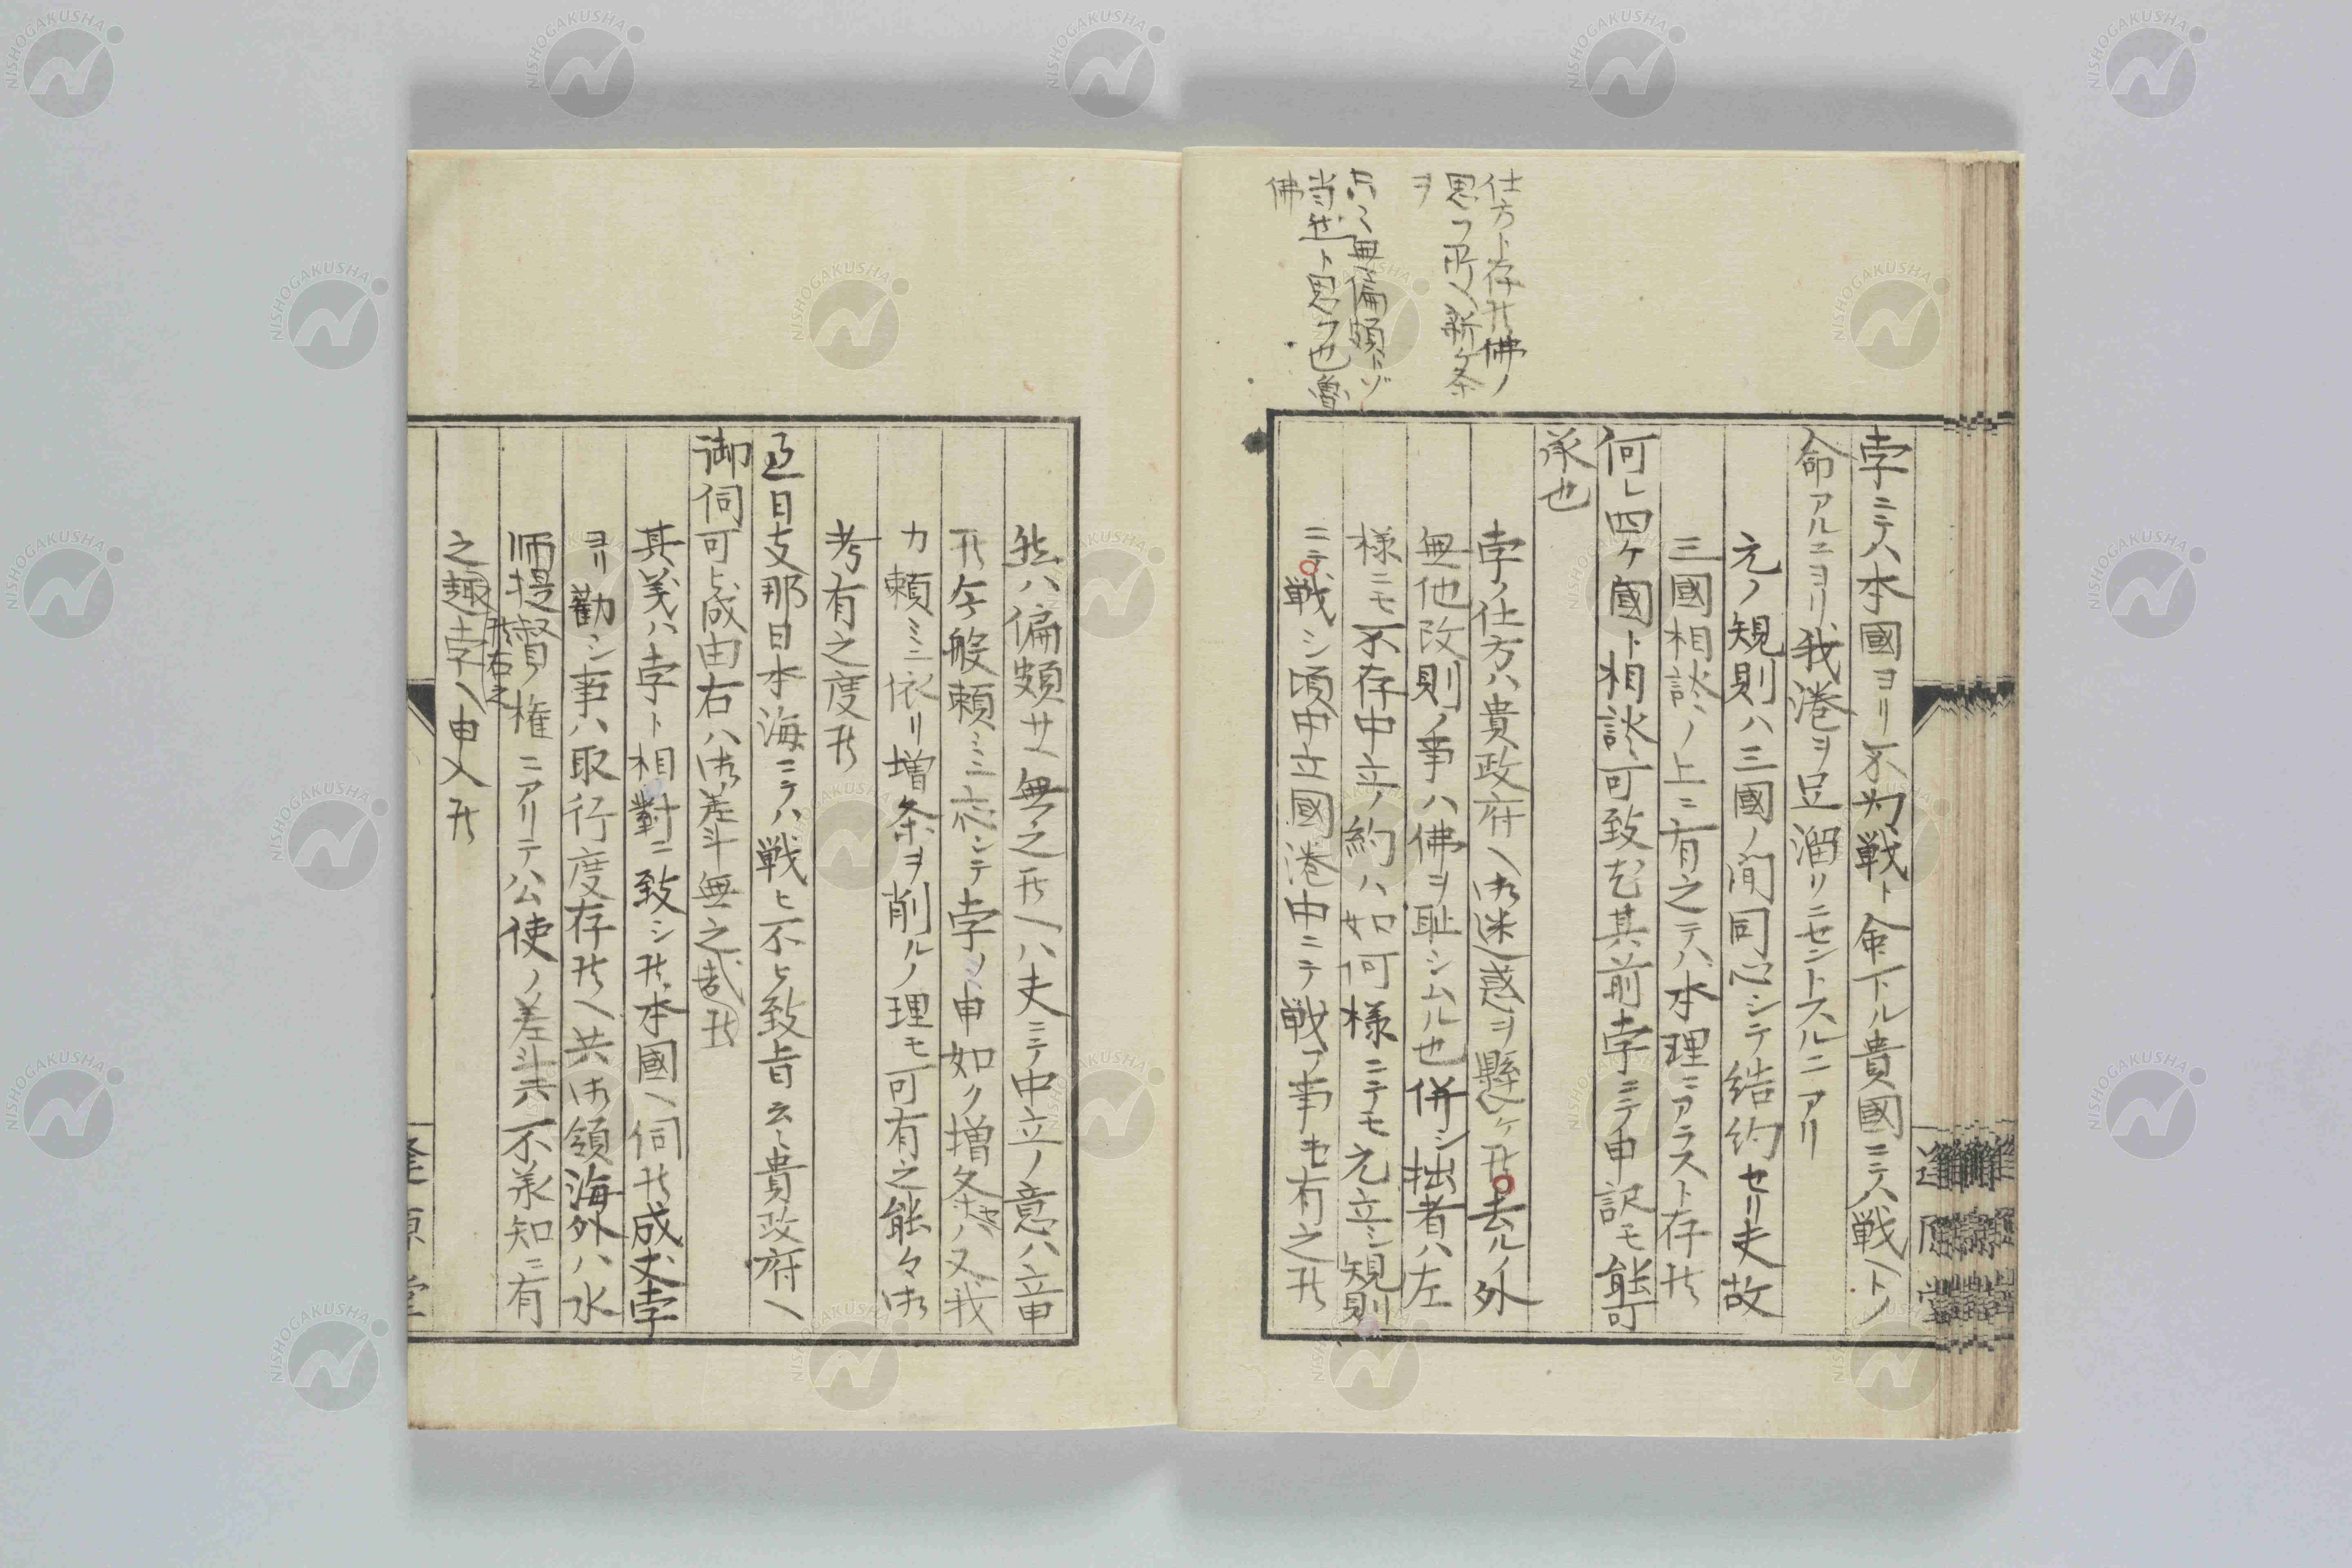 仕方ト存候佛ノ
思フ所ハ新ケ条
ヲ
無偏頗トゾ
当然ト思フ也魯
佛
孛ニテハ本國ヨリ不為戦ト命下ル貴國ニテハ戦ヘトノ
命アルニヨリ我港ヲ足溜リニセントスルニアリ
元ノ規則ハ三國ノ間同心シテ結約セリ夫故
三國相談ノ上ニ有之テハ本理ニアラスト存候
何レ四ケ國ト相談可致尤其前孛ニテ申訳モ能可
承也
孛ノ仕方ハ貴政府ヘ御迷惑ヲ懸ケ候去ルノ外
無他改則ノ事ハ佛ヲ恥シムル也併シ拙者ハ左
様ニモ不存中立ノ約ハ如何様ニテモ元立シ規則
ニテ戦シ頃中立國港中ニテ戦フ事モ有之候
然ハ偏頗サヘ無之候ヘハ夫ニテ中立ノ意ハ立申
候今般頼ミニ応シテ孛ノ申如ク増条ノ又我
力頼ミニ依リ増条ヲ削ルノ理モ可有之能々御
考有之度候
過日支那日本海ニテハ戦ヒ不ヒ致旨云々貴政府ヘ
御伺可ヒ成由右ハ御差斗無之哉候
其義ハ孛ト相對ニ致シ候本國ヘ伺候成丈孛
ヨリ勸シ事ハ取行度存候ヘ共御領海外ハ水
師提督ノ権ニアリテハ公使ノ差斗六不承知ニ有
候右之
之趣孛ヘ申入候
逢原堂
NISHOGAKUSHA